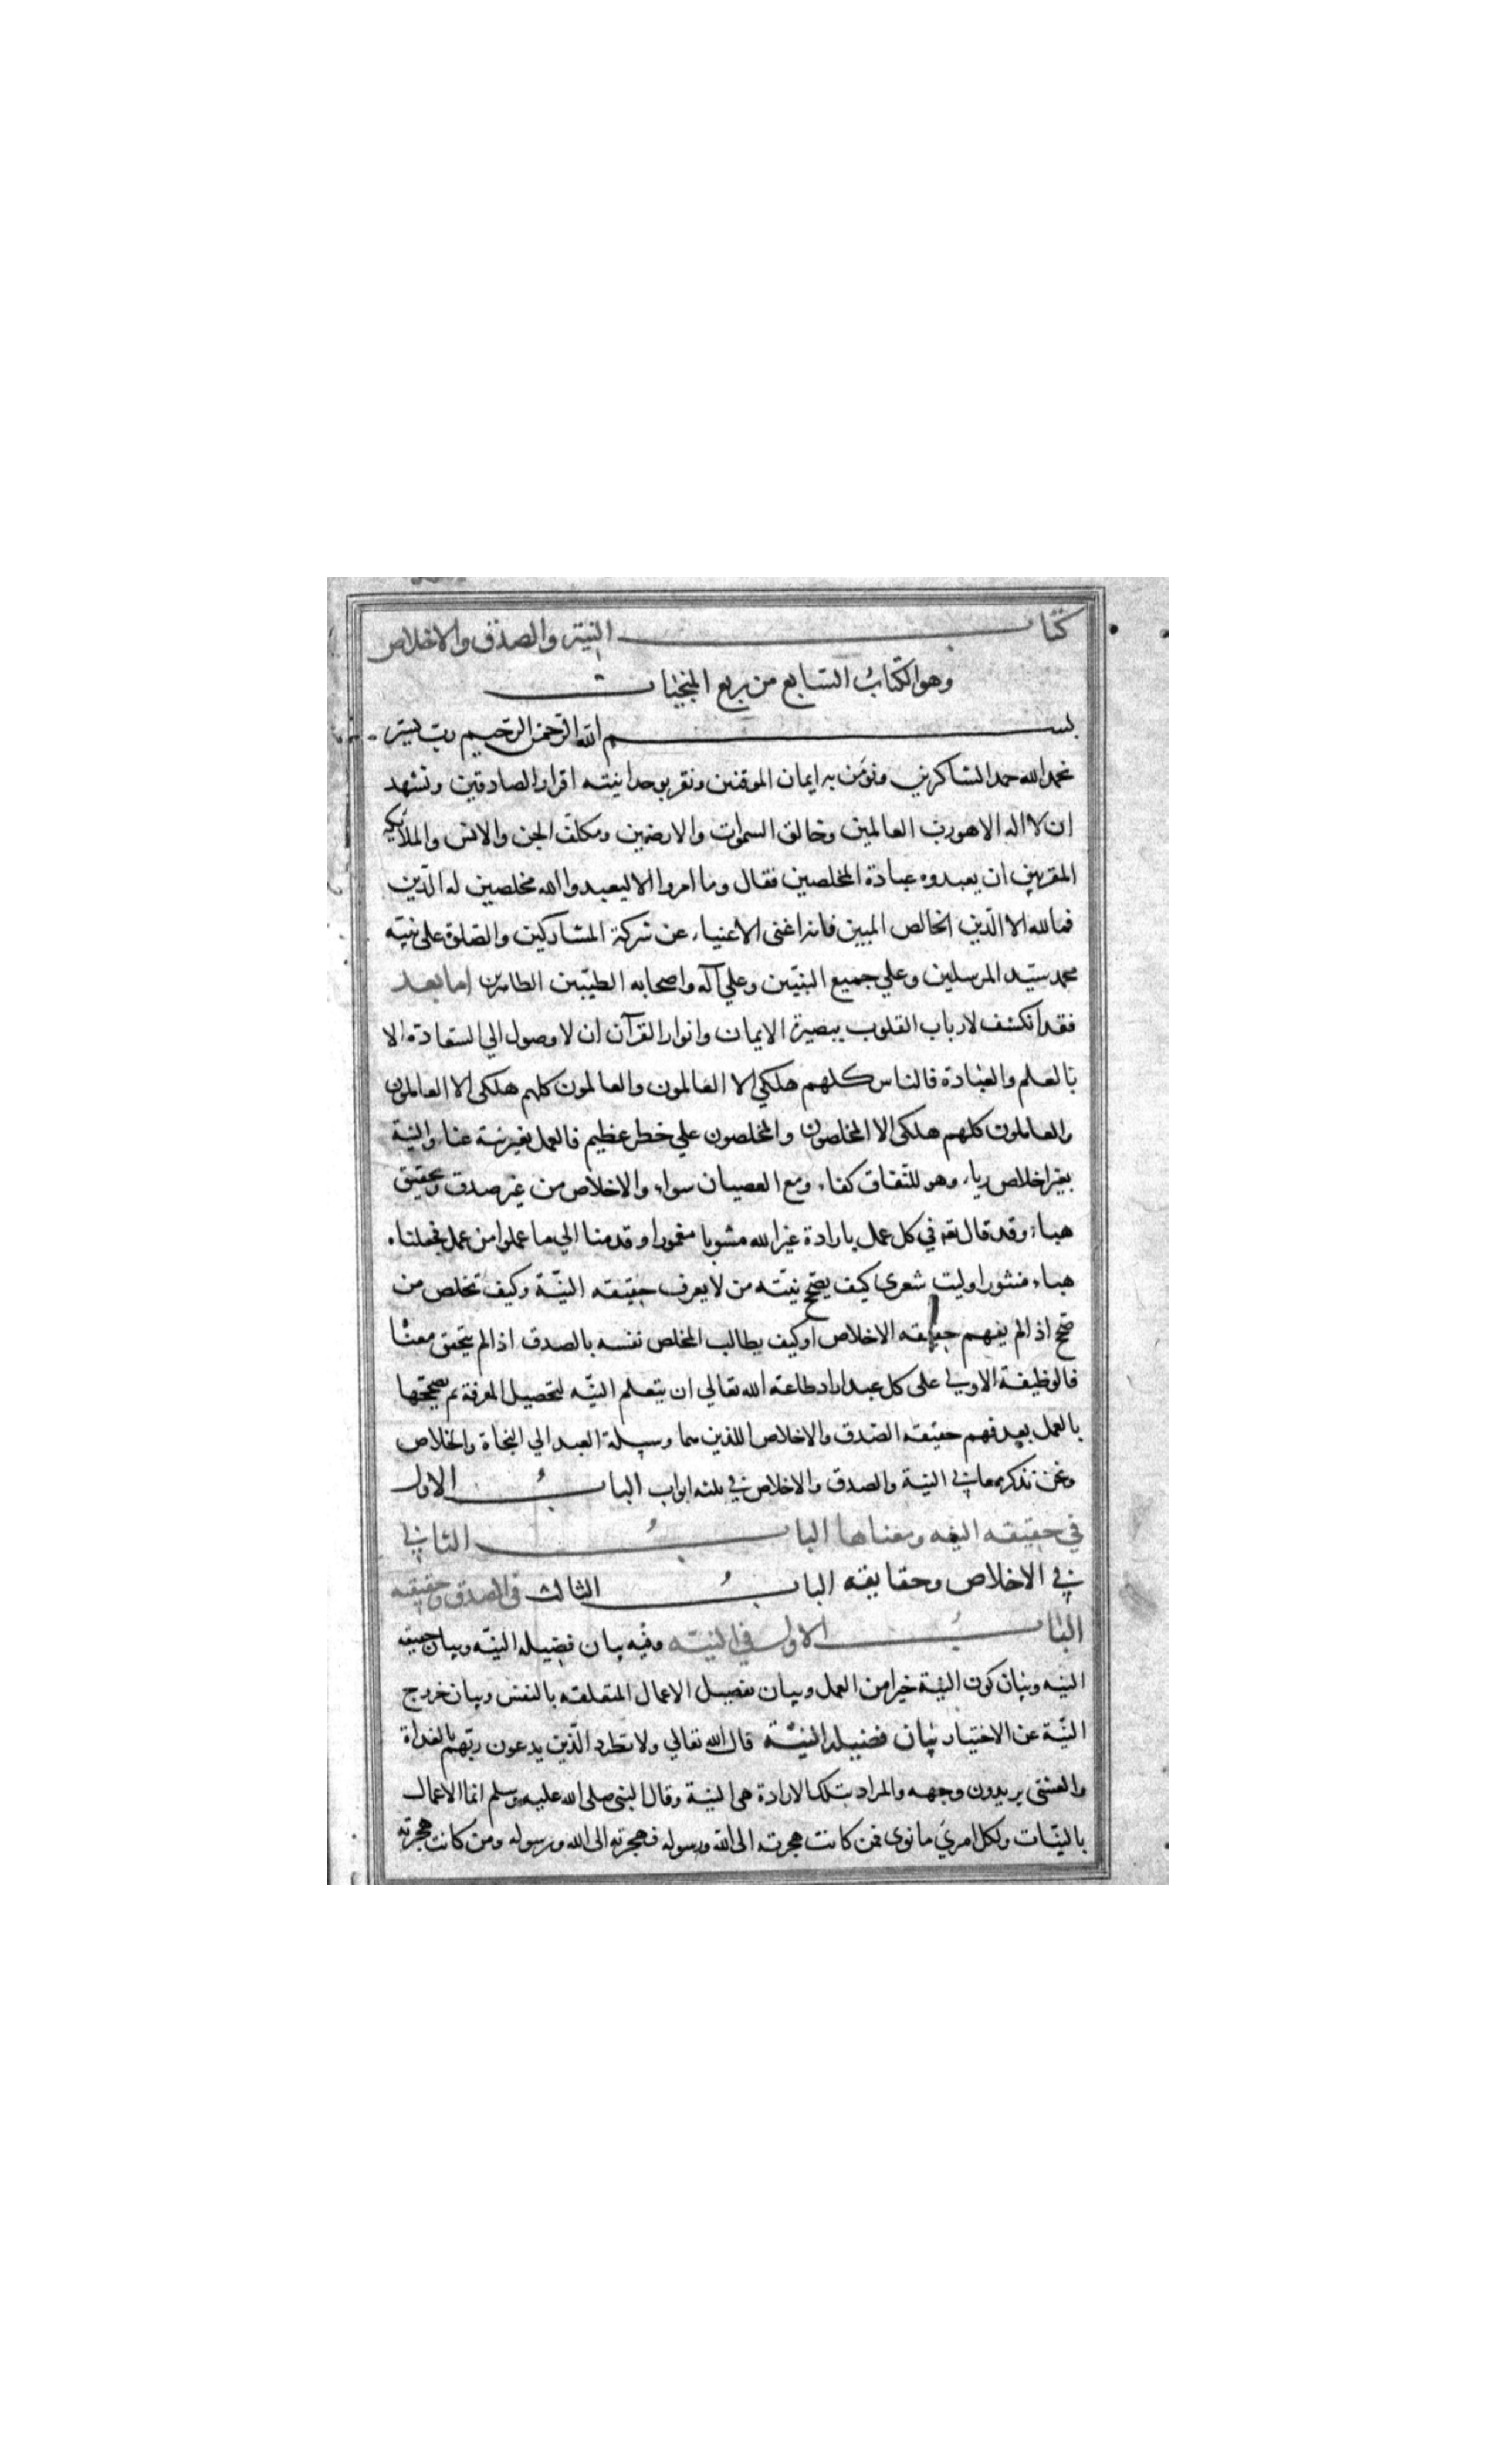 كتاب النية والصدق والاخلاص
وهو الكتاب السابع من ربع المنجيات
بسم الله الرحمن الرحيم رب يسر
نحمد الله حمد الشاكرين ونؤمن به ايمان الموقنين ونقر بوحدانيته اقرار الصادقين ونشهد
ان لا اله الا هو رب العالمين وخالق السموات والارضين ومكلف الجن والانس والملائكة
المقربين ان يعبدوه عبادة المخلصين فقال وما امروا الا ليعبدوا الله مخلصين له الدين
فما لله الا الدين الخالص المبين فانه اغنى الاغنياء عن شركة المشاركين والصلوة على نبيه
محمد سيد المرسلين وعلي جميع النبيين وعلي آله واصحابه الطيبين الطاهرين اما بعد
فقد انكشف لارباب القلوب ببصيرة الايمان وانوار القرآن ان لا وصول الي السعادة الا
بالعلم والعبادة فالناس كلهم هلكي الا العالمون والعالمون كلهم هلكى الا العاملون
والعاملون كلهم هلكى الا المخلصون والمخلصون علي خطر عظيم فالعمل بغير نية عناء والنية
بغير اخلاص رياء وهو للنفاق كفاء ومع العصيان سواء والاخلاص من غير صدق وتحقيق
هباء وقد قال تعه في كل عمل بارادة غير الله مشوبا مغمورا وقدمنا الي ما عملوا من عمل فجعلناه
هباء منثورا وليت شعرى كيف يصح نيته من لا يعرف حقيقه النية وكيف تخلص من
صح اذا لم يفهم حقيقه الاخلاص او كيف يطالب المخلص نفسه بالصدق اذا لم يتحقق معناه
فالوظيفة الاولي على كل عبد اراد طاعة الله تعالي ان يتعلم النيه لتحصيل المعرفة ثم يصححها
بالعمل بعد فهم حقيقه الصدق والاخلاص اللذين هما وسيلة العبد الي النجاة والخلاص
ونحن نذكر معاني النية والصدق والاخلاص في ثلثه ابواب الباب الاول
في حقيقه النيه ومعناها الباب الثاني
في الاخلاص وحقايقه الباب الثالث في الصدق وحقيقته
الباب الاول في النيه وفيه بيان فضيله النيه وبيان حقيقه
النيه وبيان كون النية خيرا من العمل وبيان تفصيل الاعمال المتعلقه بالنفس وبيان خروج
النية عن الاختيار بيان فضيله النية قال الله تعالي ولا تطرد الذين يدعون ربهم بالغداة
والعشى يريدون وجهه والمراد بتلك الارادة هى النية وقال النبى صلى الله عليه وسلم انما الاعمال
بالنيات ولكل امرئ ما نوى فمن كانت هجرته الى الله ورسوله فهجرته الى الله ورسوله ومن كانت هجرته